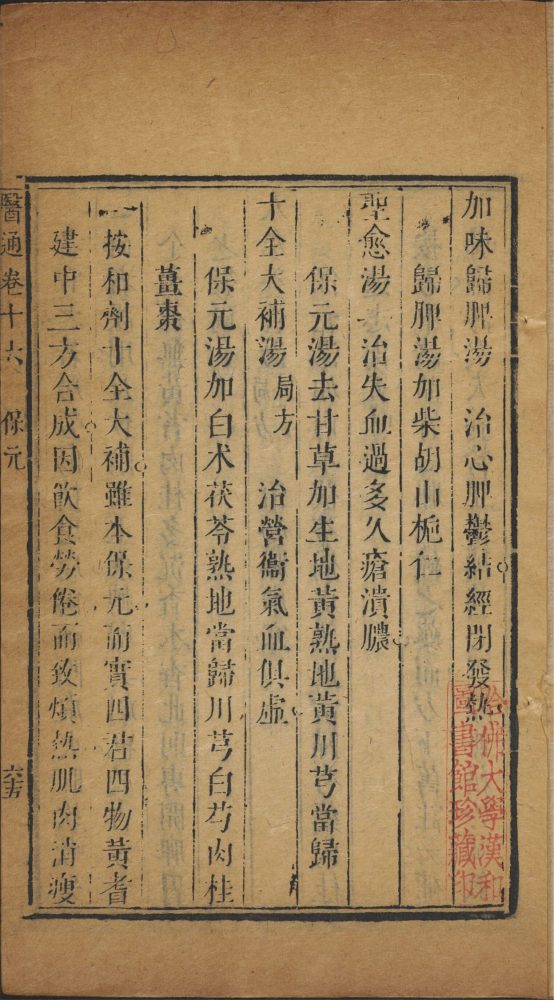 加味歸脾湯　治心脾鬱結經閉發熱
歸脾湯加柴胡山梔仁
聖愈湯　治失血過多久瘡潰膿
保元湯去甘草加生地黃熟地黃川芎當歸
十全大補湯局方　治營衞氣血俱虛
保元湯加白朮茯苓熟地當歸川芎白芍肉桂
薑棗
按和劑十全大補雖本保元而實四君四物黃耆
建中三方合成因飲食勞倦而致煩熱肌肉消瘦
醫通卷十六　保元　六十五
哈佛大學漢和
圖書館珍藏印